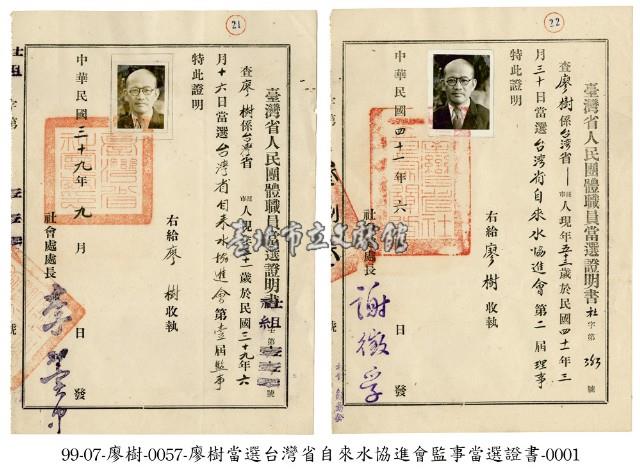 21
臺灣省人民團體職員當選證明書
社組
字第
號
查廖樹係台灣省
人現年
十歲於民國三十九年六
月十六日當選台灣省自來水協進會第壹屆監事
特此證明
右給廖樹收執
社會處處長
中華民國三十九年九月 日發
22
臺灣省人民團體職員當選證明書
社字第363號
查廖樹係台灣省
人現年五十三歲於民國四十一年三
月三十日當選台灣省自來水協進會第二屆理事
特此證明
右給廖樹收執
社會處處長
謝徵孚
中華民國四十一年六
日發
臺北市立文獻館
99-07-廖樹-0057-廖樹當選台灣省自來水協進會監事當選證書-0001